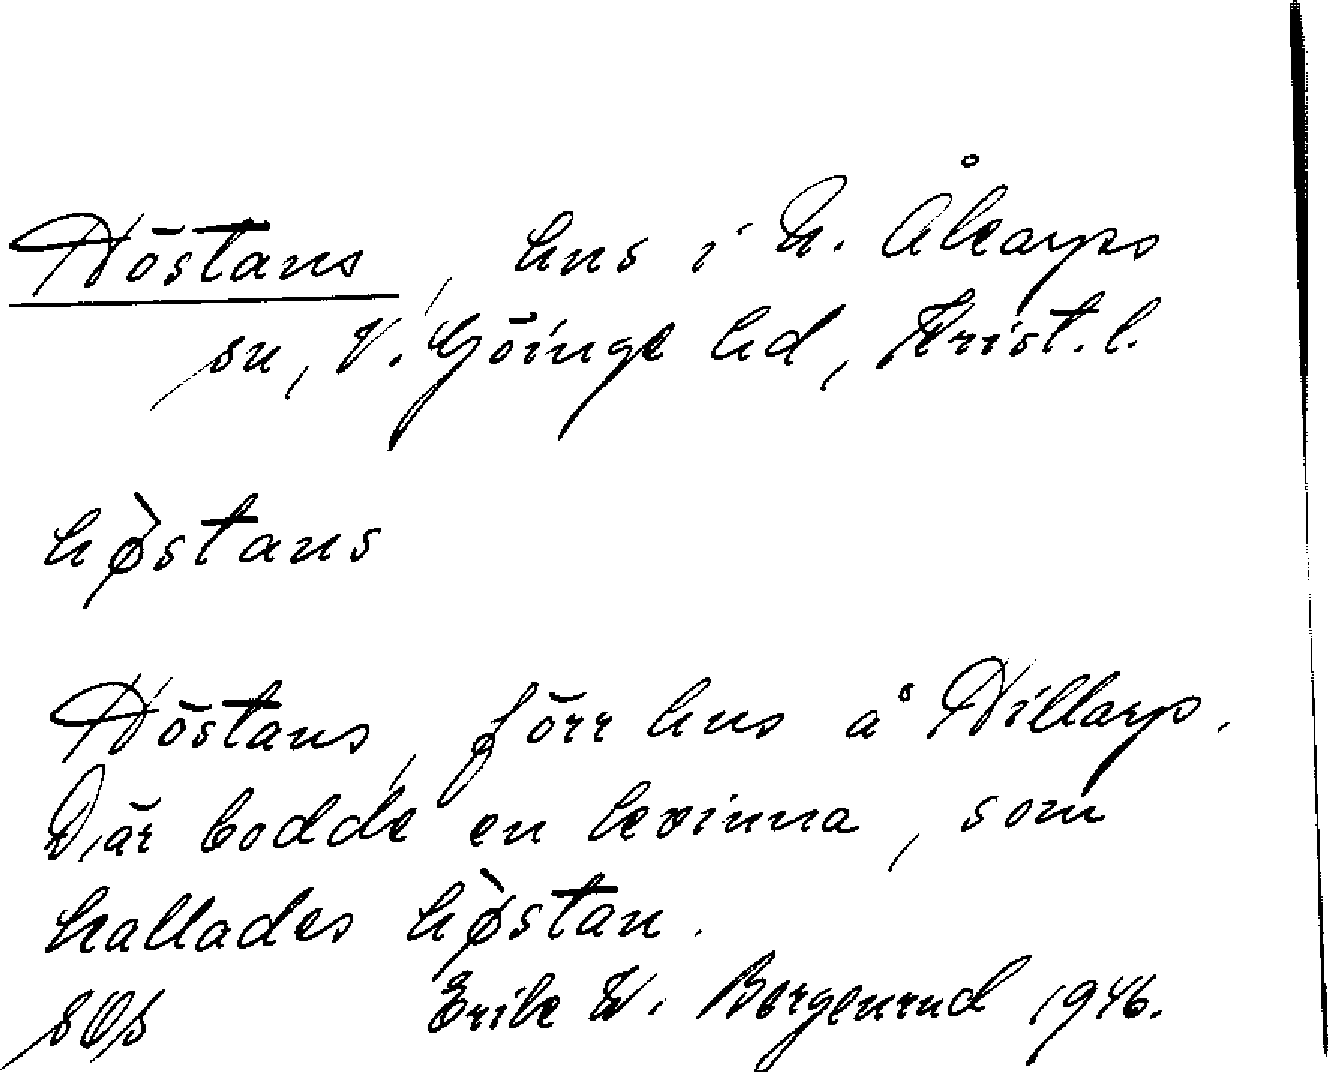 Höstans, hus i N. Åkarps
sn, V. Göinge hd, Krist. l.
hø̀stans
Höstans, förr hus å Hillarp.
Där bodde en kvinna, som
kallades hø̀stan.
SOS Erik W. Bergenrud 1946.